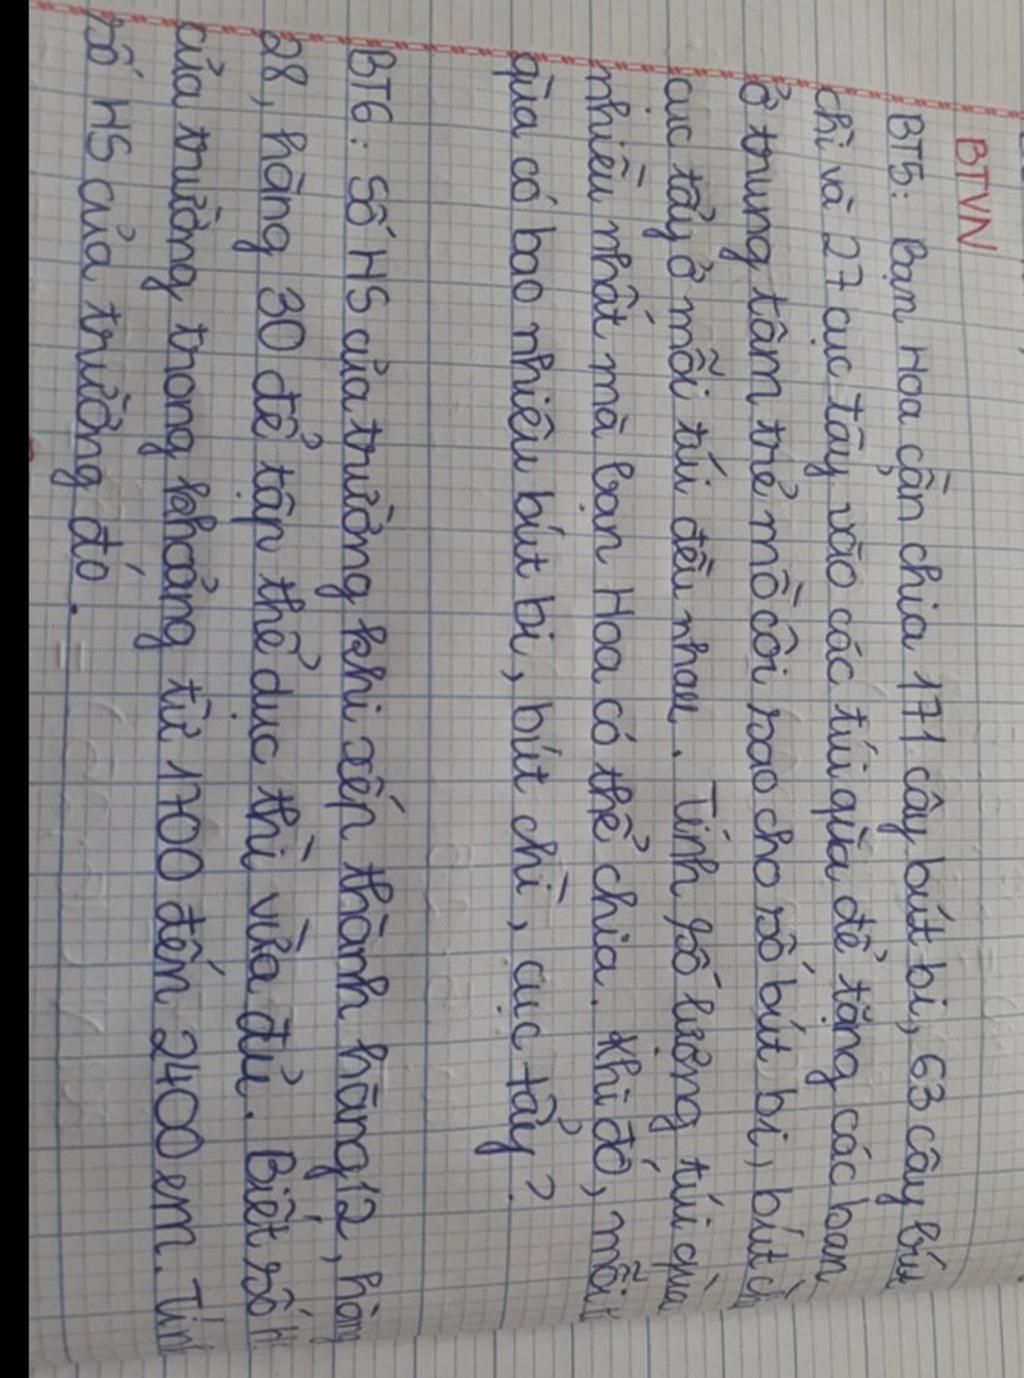 BTVN
BT5: Bạn Hoa cần chia 171 cây bút bi, 63 cây bút
chì và 27 cục tẩy vào các túi quà để tặng các bạn
ở trung tâm trẻ mồ côi sao cho số bút bi, bút ch
cục tẩy ở mỗi túi đều nhau. Tính số lượng túi quà
nhiều nhất mà bạn Hoa có thể chia. Khi đó, mỗi t
quà có bao nhiêu bút bi, bút chì, cục tẩy?
BT6: Số HS của trường khi xếp thành hàng 12, hàng
28, hàng 30 để tập thể dục thì vừa đủ. Biết số H
của trường trong khoảng từ 1700 đến 2400 em. Tính
số HS của trường đó.